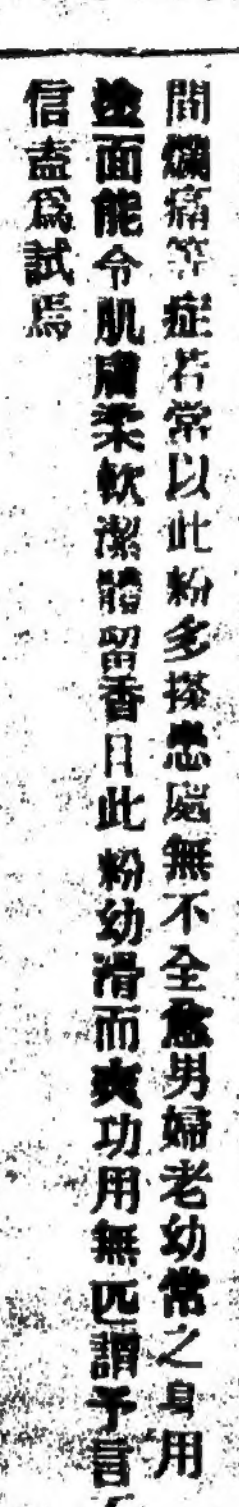 間爛痛等症若常以此粉多搽患處無不全愈男婦老幼常之身用
塗面能令肌膚柔軟潔體留香且此粉幼滑而爽功用無匹謂予言
信盍為試焉